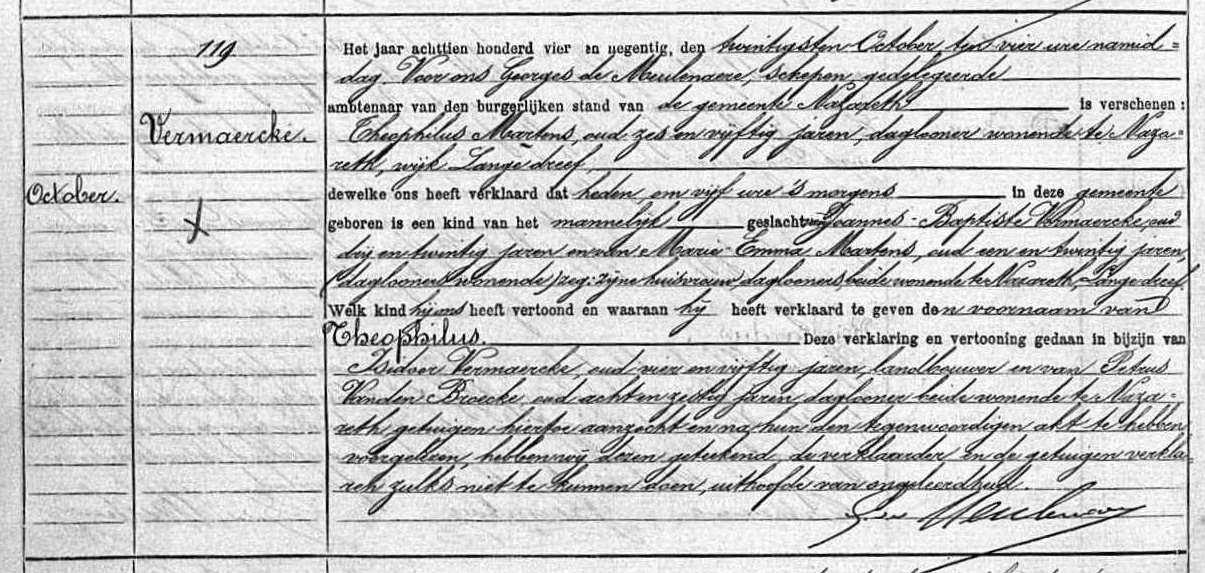 119
Vermaercke.
October.
Het jaar achttien honderd vier en negentig, den twintigsten October, ten vier ure namid=
dag Voor ons Georges de Meulenaere, schepen, gedelegeerde
ambtenaar van den burgerlijken stand van de gemeente Nazareth is verschenen:
Theophilus Martens, oud zes en vijftig jaren, daglooner wonende te Naza=
reth, wijk Lange dreef,
dewelke ons heeft verklaard dat heden, om vijf ure 's morgens in deze gemeente
geboren is een kind van het mannelijk geslacht van Joannes-Baptiste Vermaercke, oud
drij en twintig jaren en van Marie Emma Martens, oud een en twintig jaren,
(daglooners wonende) zeg: zijne huisvrouw, daglooners beide wonende te Nazareth, Lange dreef.
Welk kind hij ons heeft vertoond en waaraan hij heeft verklaard te geven den voornaam van
Theophilus. Deze verklaring en vertooning gedaan in bijzijn van
Isidoor Vermaercke, oud vier en vijftig jaren, landbouwer en van Petrus
Vanden Broecke, oud acht en zestig jaren, daglooner beide wonende te Naza=
reth getuigen hiertoe aanzocht en na hun den tegenwoordigen akt te hebben
voorgelezen, hebben wij dezen geteekend, de verklaarder en de getuigen verkla=
ren zulks niet te kunnen doen, uithoofde van ongeleerdheid.